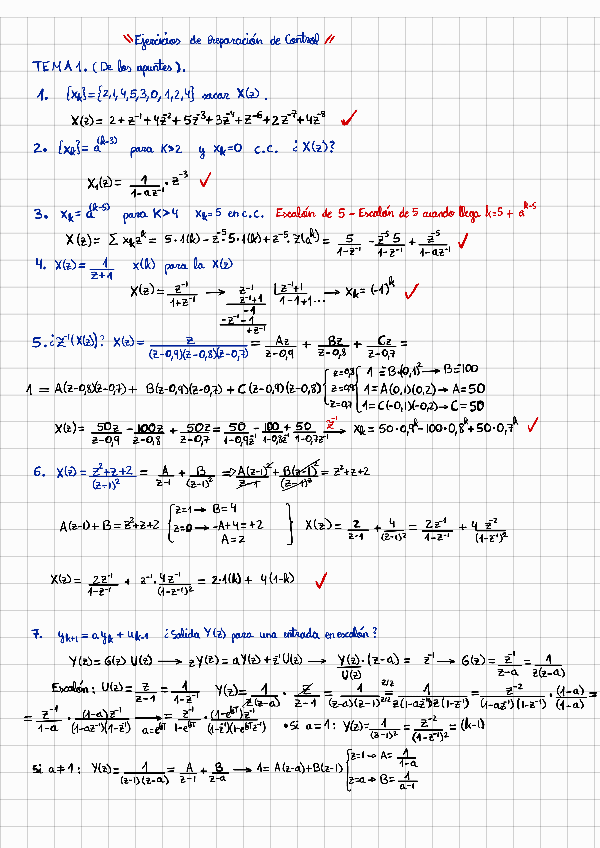 "Ejercicios de Preparación de Control"
TEMA 1. (De los apuntes).
1. {xk}={2,1,4,5,3,0,1,2,4} sacar X(z).
X(z)= 2+z⁻¹+4z⁻²+5z⁻³+3z⁻⁴+z⁻⁶+2z⁻⁷+4z⁻⁸ ✓
2. {xk}= a^(k-3) para K>2 y xk=0 c.c. ¿X(z)?
X₁(z)= 1/(1-az⁻¹) · z⁻³ ✓
3. xk= a^(k-5) para K>4 xk=5 en c.c. Escalón de 5 - Escalón de 5 cuando llega k=5 + a^(k-5)
X(z)= Σ xk z^k = 5·1(k) - z⁻⁵·5·1(k) + z⁻⁵·Z(a^k) = 5/(1-z⁻¹) - z⁻⁵5/(1-z⁻¹) + z⁻⁵/(1-az⁻¹) ✓
4. X(z)= 1/(z+1) x(k) para la X(z)
X(z)= z⁻¹/(1+z⁻¹) → z⁻¹ |z⁻¹+1 → xk= (-1)^k ✓
z⁻¹+1 1-1+1...
-1
-z⁻¹-1
+z⁻¹
5. ¿Z⁻¹(X(z))? X(z)= z/((z-0,9)(z-0,8)(z-0,7)) = Az/(z-0,9) + Bz/(z-0,8) + Cz/(z-0,7) =
1 = A(z-0,8)(z-0,7)+ B(z-0,9)(z-0,7)+C(z-0,9)(z-0,8) { z=0,8 1 = B·(0,1)² → B=100
z=0,9 1=A(0,1)(0,2) → A=50
z=0,7 1=C(-0,1)(-0,2) → C=50
X(z)= 50z/(z-0,9) - 100z/(z-0,8) + 50z/(z-0,7) = 50/(1-0,9z⁻¹) - 100/(1-0,8z⁻¹) + 50/(1-0,7z⁻¹) z⁻¹→ xk= 50·0,9^k-100·0,8^k+50·0,7^k ✓
6. X(z)= (z²+z+2)/(z-1)² = A/(z-1) + B/(z-1)² => A(z-1)²/(z-1) + B(z-1)²/(z-1)² = z²+z+2
A(z-1)+B = z²+z+2 { z=1 → B=4
z=0 → -A+4=+2
A=2 } X(z)= 2/(z-1) + 4/(z-1)² = 2z⁻¹/(1-z⁻¹) + 4 z⁻²/(1-z⁻¹)²
X(z)= 2z⁻¹/(1-z⁻¹) + z⁻¹·4z⁻¹/(1-z⁻¹)² = 2·1(k) + 4(1-k) ✓
7. yk+1 = ayk + uk-1 ¿Salida Y(z) para una entrada en escalón?
Y(z)= G(z) U(z) → zY(z) = aY(z)+z⁻¹U(z) → Y(z)/U(z)·(z-a) = z⁻¹ → G(z)= z⁻¹/(z-a) = 1/(z(z-a))
Escalón: U(z)= z/(z-1) = 1/(1-z⁻¹) Y(z)= 1/(z(z-a)) · z/(z-1) = 1/((z-a)(z-1)) z/z z/z = 1/(z(1-az⁻¹)z(1-z⁻¹)) = z⁻²/((1-az⁻¹)(1-z⁻¹)) · (1-a)/(1-a) =
= z⁻¹/(1-a) · (1-a)z⁻¹/((1-az⁻¹)(1-z⁻¹)) → a=e^bT = z⁻¹/(1-e^bT) · (1-e^bT)z⁻¹/((1-z⁻¹)(1-e^bT z⁻¹)) • Si a=1: Y(z)= 1/(z-1)² = z⁻²/(1-z⁻¹)² = (k-1)
Si a≠1: Y(z)= 1/((z-1)(z-a)) = A/(z-1) + B/(z-a) → 1=A(z-a)+B(z-1) { z=1 → A= 1/(1-a)
z=a → B= 1/(a-1)